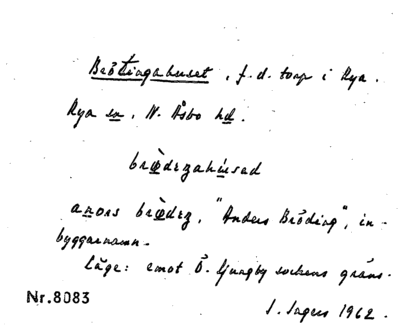 Brödingahuset, f.d. torp i Rya.
Rya sn, N. Åsbo hd.
brœ̀dɛŋahúsəd
anərs brœ̀dɛŋ, "Anders Bröding", in-
byggarnamn.
Läge: emot Ö. Ljungby sockens gräns.
Nr.8083
1962.